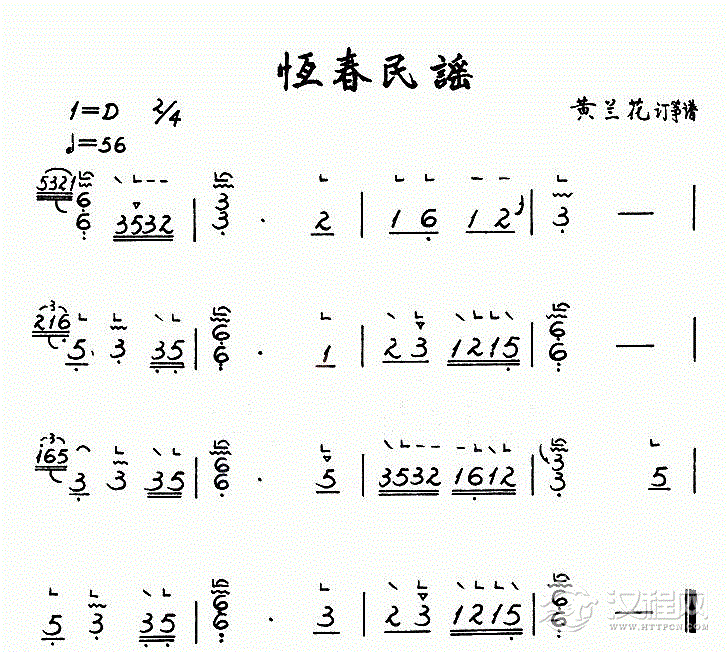 恆春民謠
1=D 2/4
黄兰花 订筝谱
♩=56
5321 6 6 3532 | 3 3 · 2 | 1 6 1 2 | 3 — |
3
216 5 · 3 35 | 6 6 · 1 | 2 3 1215 | 6 6 — |
3
165 3 3 35 | 6 6 · 5 | 3532 1612 | 3 3 5 |
5 3 35 | 6 6 · 3 | 2 3 1215 | 6 6 — ‖
汉程网
HTTPCN.COM